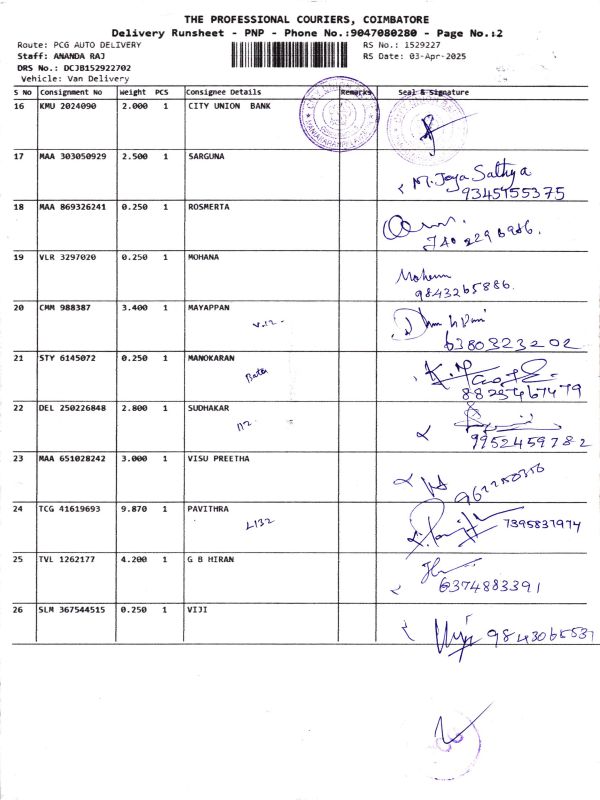 THE PROFESSIONAL COURIERS, COIMBATORE
Delivery Runsheet - PNP - Phone No.:9047080280 - Page No.:2
Route: PCG AUTO DELIVERY
RS No.: 1529227
Staff: ANANDA RAJ
RS Date: 03-Apr-2025
DRS No.: DCJB152922702
Vehicle: Van Delivery
S No Consignment No Weight PCS Consignee Details Remarks Seal & Signature
16 KMU 2024090 2.000 1 CITY UNION BANK
17 MAA 303050929 2.500 1 SARGUNA
M. Jeya Sathya
9345755375
18 MAA 869326241 0.250 1 ROSMERTA
19 VLR 3297020 0.250 1 MOHANA
9843265886.
20 CMM 988387 3.400 1 MAYAPPAN
V.12-
6380323202
21 STY 6145072 0.250 1 MANOKARAN
8825467479
22 DEL 250226848 2.800 1 SUDHAKAR
9952459782
23 MAA 651028242 3.000 1 VISU PREETHA
24 TCG 41619693 9.870 1 PAVITHRA
L132
7395837974
25 TVL 1262177 4.200 1 G B HIRAN
6374883391
26 SLM 367544515 0.250 1 VIJI
Viji 9843065537